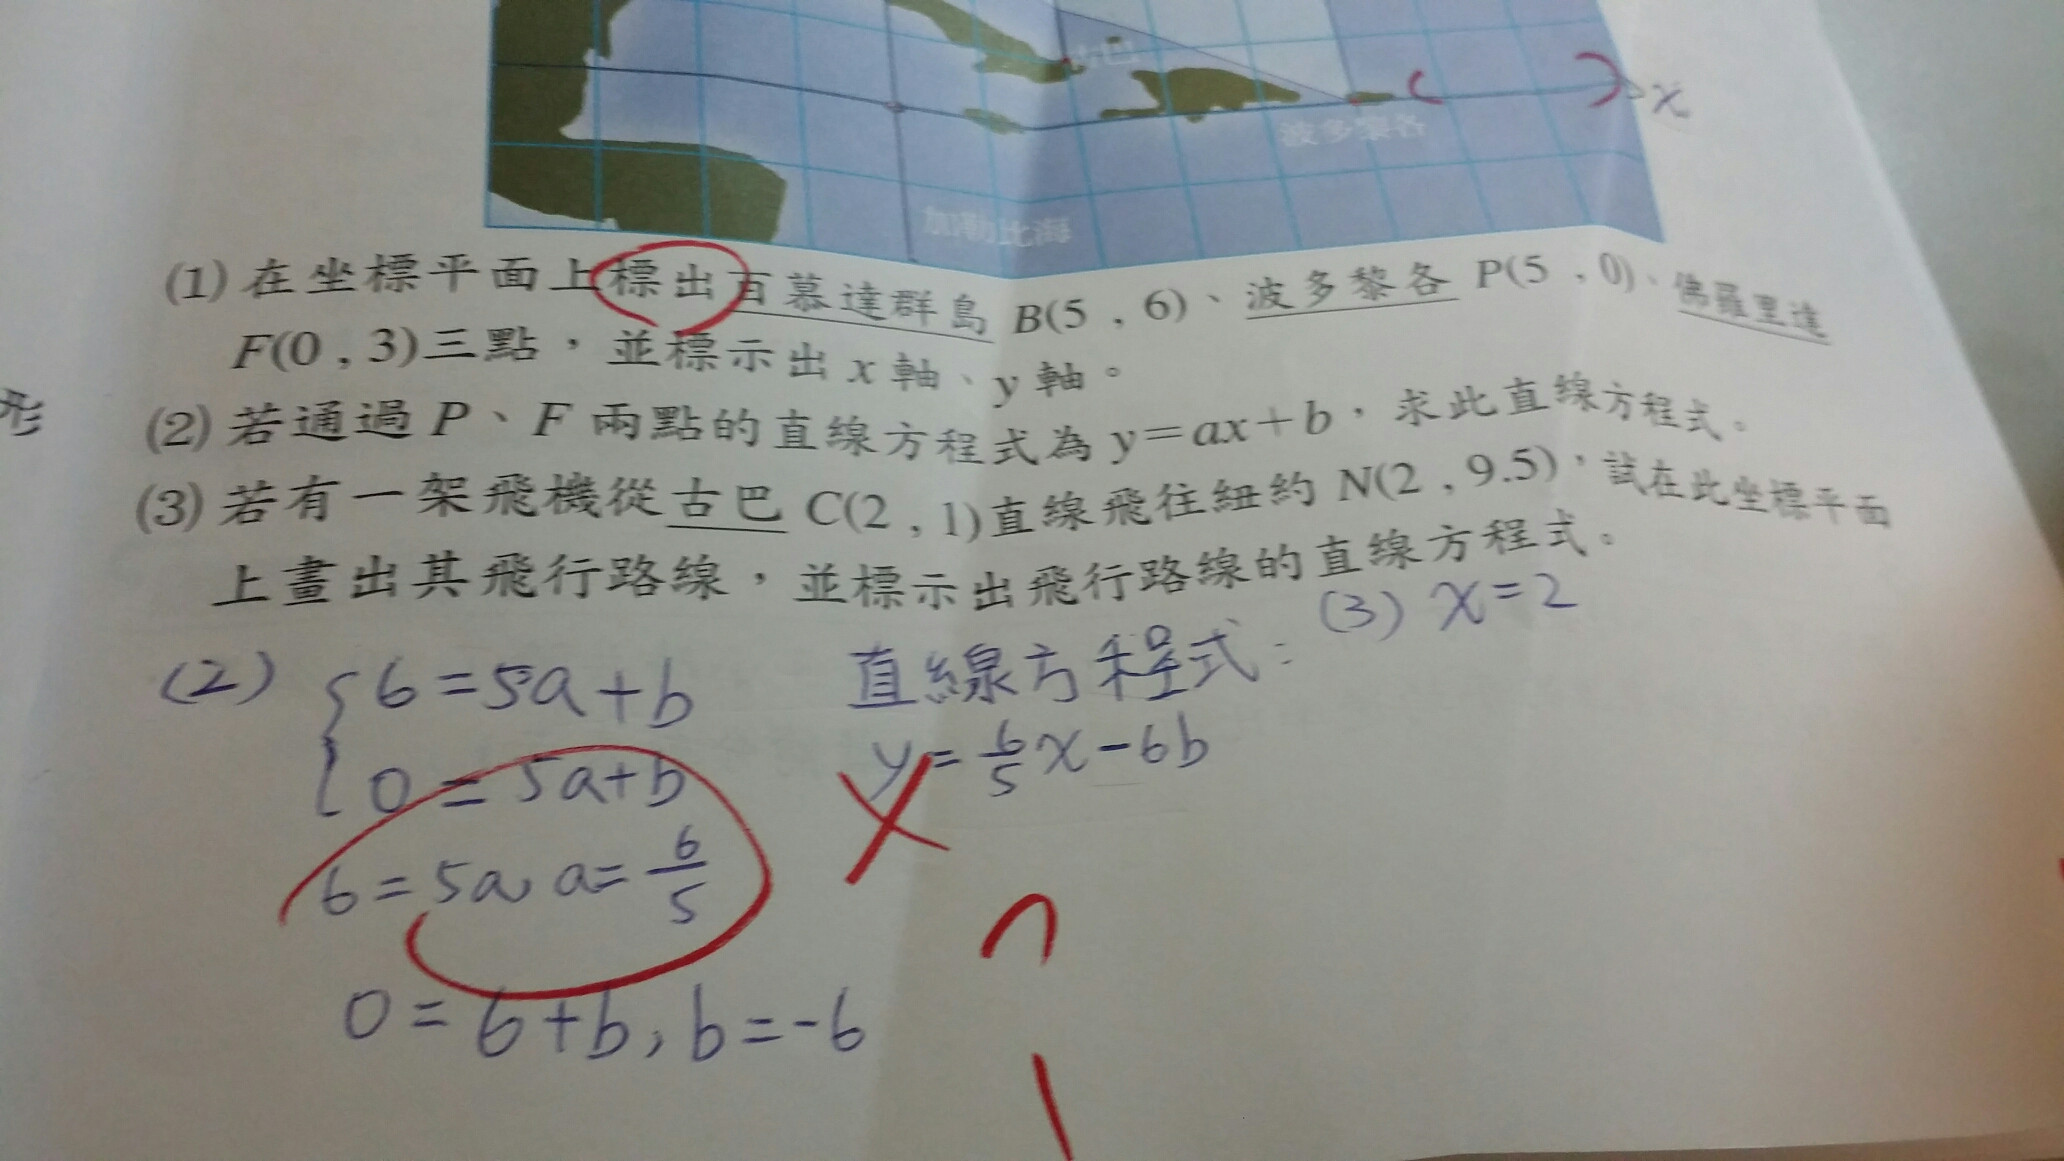 古巴
x
波多黎各
加勒比海
(1) 在坐標平面上標出百慕達群島 B(5 , 6)、波多黎各 P(5 , 0)、佛羅里達
F(0 , 3)三點，並標示出 x 軸、y 軸。
形
(2) 若通過 P、F 兩點的直線方程式為 y=ax+b，求此直線方程式。
(3) 若有一架飛機從古巴 C(2 , 1)直線飛往紐約 N(2 , 9.5)，試在此坐標平面
上畫出其飛行路線，並標示出飛行路線的直線方程式。
(2) { 6=5a+b
0=5a+b
6=5a, a=6/5
0=6+b, b=-6
直線方程式:
y=6/5x-6b
(3) x=2